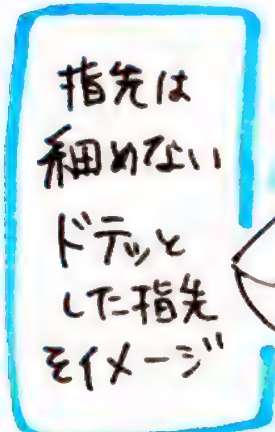 指先は
細めない
ドテッと
した指先
をイメージ